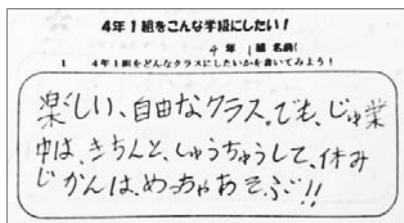 4年1組をこんな学級にしたい!
4年 1組 名前(
1 4年1組をどんなクラスにしたいかを書いてみよう!
楽しい、自由なクラス。でも、じゅ業
中は、きちんと、しゅうちゅうして、休み
じかんは、めっちゃあそぶ!!